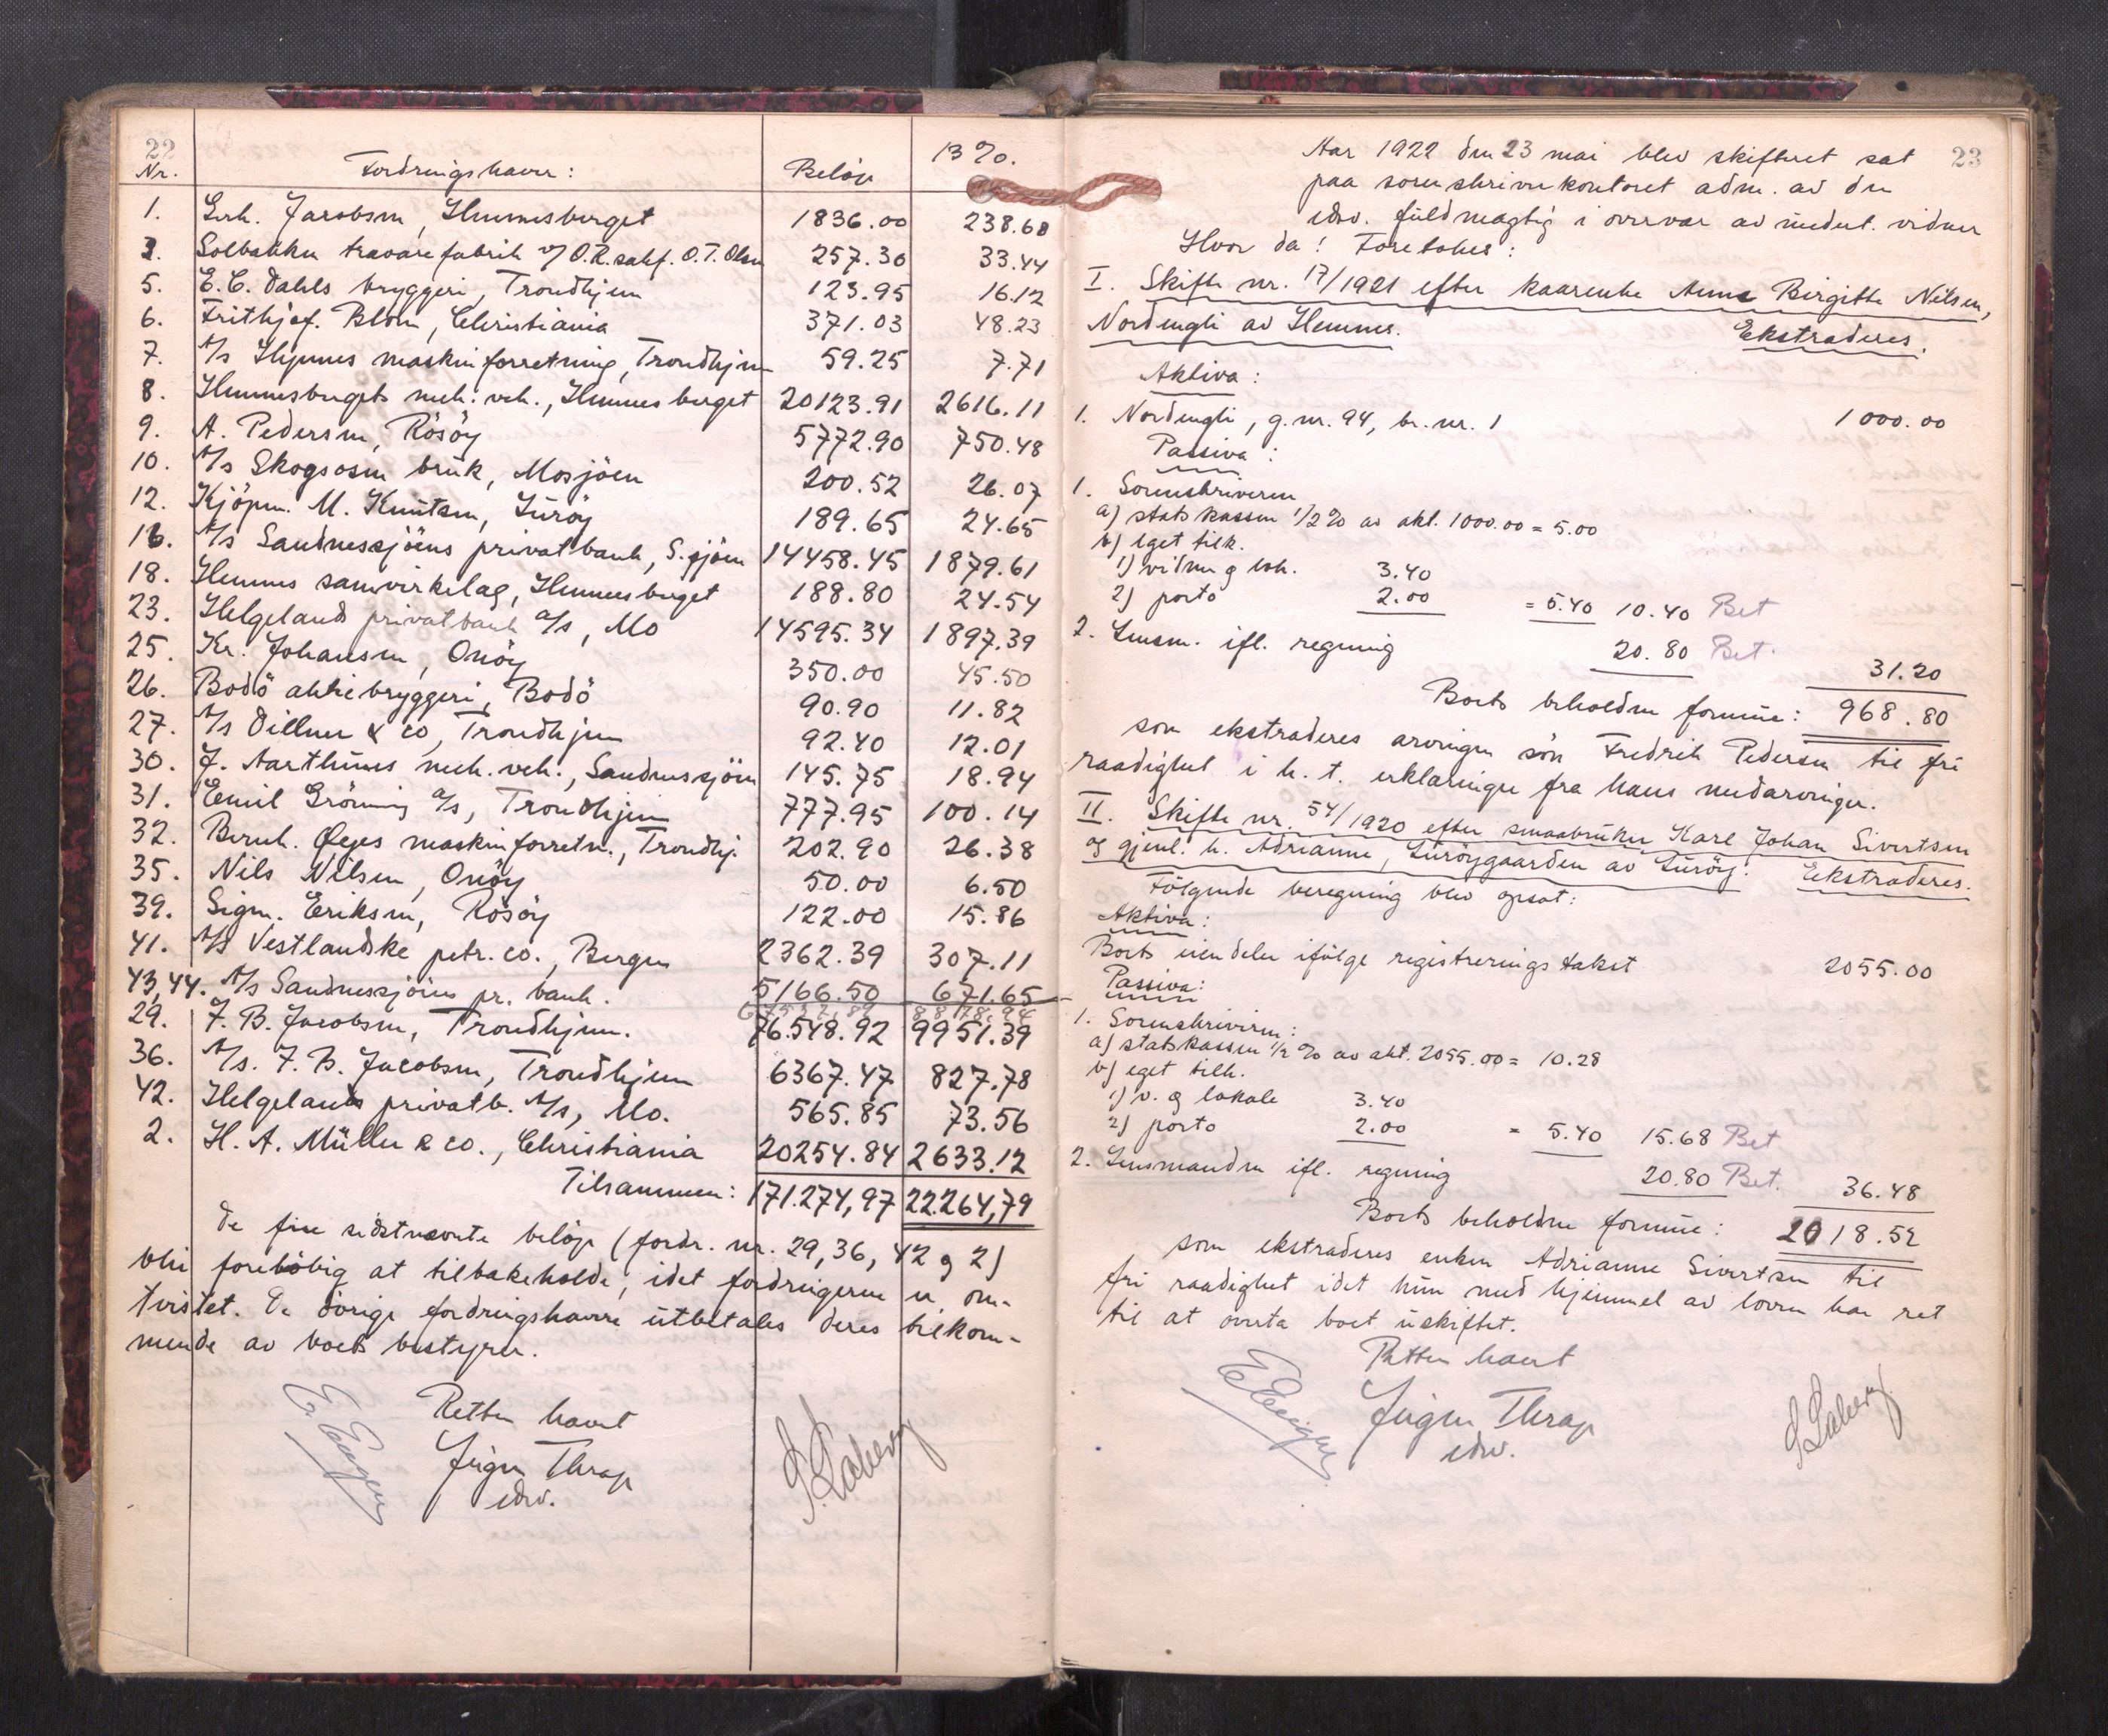 22
Nr. Fordringshaver: Beløp 13%.
1. Gerh. Jacobsen, Hemnesberget 1836.00 238.68
3. Solbakken travarefabrik v/ O.R.sakf. O.T. Olsen 257.30 33.44
5. E.C. Dahls bryggeri, Trondhjem 123.95 16.12
6. Frithjof. Blom, Christiania 371.03 48.23
7. A/s Hjemnes maskinforretning, Trondhjem 59.25 7.71
8. Hemnesbergets mek. verk., Hemnesberget 20123.91 2616.11
9. A. Pedersen, Rösöy 5772.90 750.48
10. A/s Skogsosen bruk, Mosjöen 200.52 26.07
12. Kjöpm. M. Knutsen, Luröy 189.65 24.65
16. A/s Sandnessjöens privatbank, S.sjöen 14458.45 1879.61
18. Hemnes samvirkelag, Hemnesberget 188.80 24.54
23. Helgeland privatbank A/s, Mo 14595.34 1897.39
25. Kr. Johansen, Onöy 350.00 45.50
26. Bodö aktiebryggeri, Bodö 90.90 11.82
27. A/s Dillner & co, Trondhjem 92.40 12.01
30. J. Aarthuns mek. verk., Sandnessjöen 145.75 18.94
31. Emil Gröning A/s, Trondhjem 777.95 100.14
32. Bernh. Øyes maskinforretn., Trondhj. 202.90 26.38
35. Nils Nilsen, Onöy 50.00 6.50
39. Sigm. Eriksen, Rösöy 122.00 15.86
41. A/S Vestlandske petr. co., Bergen 2362.39 307.11
43,44. A/s Sandnessjöens pr. bank. 5166.50 671.65
29. J. B. Jacobsen, Trondhjem. 76.548.92 9951.39
36. A/s. J. B. Jacobsen, Trondhjem 6367.47 827.78
42. Helgelands privatb. A/s, Mo. 565.85 73.56
2. H. A. Müller & co., Christiania 20254.84 2633.12
Tilsammen: 171.274,97 22.264,79
De fire sidstnævnte beløp (fordr. nr. 29, 36, 42 og 2)
blir foreløbig at tilbakeholde, idet fordringerne er om-
tvistet. De övrige fordringshavere utbetales deres tilkom-
mende av boets bestyrer.
Retten hævet
Jürgen Thrap
edsv.
23
Aar 1922 den 23 mai blev skifteret sat
paa sorenskriverkontoret adm. av den
edsv. fuldmægtig i overvær av undert. vidner
Hvor da! Foretokes:
I. Skifte nr. 17/1921 efter kaarenke Anne Birgitte Nilsen,
Nordengli av Hemnes. Ekstraderes.
Aktiva:
1. Nordengli, g.nr. 94, br. nr. 1 1000.00
Passiva:
1. Sorenskriveren
a) statskassen 1/2% av akt. 1000.00 = 5.00
b) eget tilk.
1) vidne og lok. 3.40
2) porto 2.00 = 5.40 10.40 Bet
2. Lensm. ifl. regning 20.80 Bet. 31.20
Boets beholdne formue: 968.80
som ekstraderes arvingen sön Fredrik Pedersen til fri
raadighet i h. t. erklæringer fra hans medarvinger.
II. Skifte nr. 54/1920 efter smaabruker Karl Johan Sivertsen
og gjenl. h. Adrianne, Luröygaarden av Luröy. Ekstraderes.
Fölgende beregning blev opsat:
Aktiva:
Boets eiendeler ifölge registreringstakst 2055.00
Passiva:
1. Sorenskriveren:
a) statskassen 1/2% av akt. 2055.00 = 10.28
b) eget tilk.
1) v. og lokale 3.40
2) porto 2.00 = 5.40 15.68 Bet
2. Lensmanden ifl. regning 20.80 Bet. 36.48
Boets beholdne formue: 2018.52
som ekstraderes enken Adrianne Sivertsen til
fri raadighet idet hun med hjemmel av loven har ret
til at overta boet uskiftet.
Retten hævet
Jürgen Thrap
edsv.